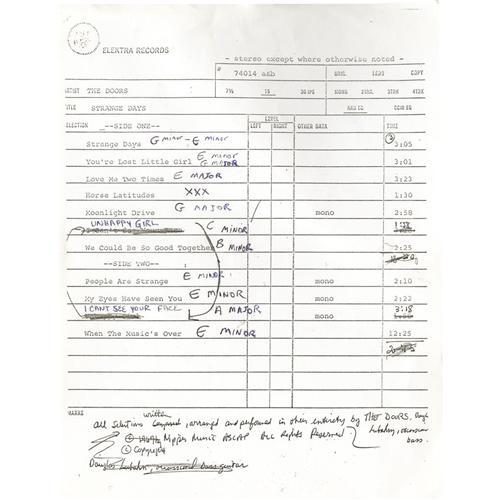 ELEKTRA RECORDS
- stereo except where otherwise noted -
# 74014 a&b COPY
ARTIST THE DOORS 7½ 15 30 IPS MONO 2TRK 3TRK 4TRK
TITLE STRANGE DAYS
LEVEL
SELECTION --SIDE ONE-- LEFT RIGHT OTHER DATA TIME
Strange Days G MINOR - E MINOR 3:05
E MINOR
You're Lost Little Girl G MAJOR 3:01
Love Me Two Times E MAJOR 3:23
Horse Latitudes XXX 1:30
Moonlight Drive G MAJOR mono 2:58
UNHAPPY GIRL C MINOR
We Could Be So Good Together B MINOR 2:25
--SIDE TWO--
People Are Strange E MINOR mono 2:10
My Eyes Have Seen You E MINOR mono 2:22
I CANT SEE YOUR FACE A MAJOR mono 3:18
When The Music's Over E MINOR 12:25
written
all Selections Composed, arranged and performed in their entirety by THE DOORS, Doug
Lubahn, occasional
bass.
Nipper Music ASCAP All Rights Reserved
© Copyright
Douglas Lubahn, occasional bass guitar